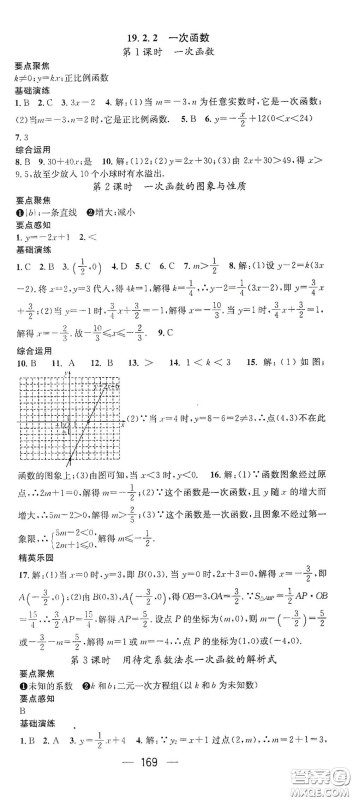 19.2.2 一次函数
第1课时 一次函数
要点聚焦
k≠0;y=kx;正比例函数
基础演练
1. B 2. C 3. 3x-2 4. 解:(1)当m=-3,n为任意实数时,它是一次函数;
(2)当m=-3,n=2时,它是正比例函数. 5. C 6. y=-x/2+12(0<x<24)
7. 3
综合运用
8. B 9. 30+40x;是 10. 解:(1)2;(2)y=2x+30;(3)由2x+30>49,得x>
9.5,故至少放入10个小球时有水溢出.
第2课时 一次函数的图象与性质
要点聚焦
❶|b|;一条直线 ❷增大;减小
要点感知
1. y=-2x+1 2. <
基础演练
1. C 2. B 3. (1/2,0) 4. 3 5. C 6. B 7. m>1/2 8. 解:(1)设y-2=k(3x
-2).将x=2,y=3代入,得4k=1,解得k=1/4,∴y-2=1/4(3x-2),∴y=3/4x+
3/2;(2)当y=-1时,3/4x+3/2=-1,解得x=-10/3.当y=1时,3/4x+3/2=1,解
得x=-2/3.故-10/3≤x≤-2/3. 9. C
综合运用
10. B 11. A 12. B 13. > 14. 1<k<3 15. 解:(1)如图:
y=2x-6
(2)∵当x=4时,y=8-6=2≠3,∴点(4,3)不在此
函数的图象上;(3)由图可知,当x<3时,y<0. 16. 解:(1)∵函数图象经过原
点,∴2m+1=0,解得m=-1/2;(2)∵这个函数是一次函数,且y随x的增大而
增大,∴5m-2>0,解得m>2/5;(3)∵这个函数是一次函数,且图象不经过第一
象限,∴{5m-2<0, 2m+1≤0,解得m≤-1/2.
精英乐园
17. 解:(1)令x=0时,y=3,即B(0,3).当y=0时,2x+3=0,解得x=-3/2,即
A(-3/2,0);(2)由(1)知,B(0,3),A(-3/2,0),得OB=3,OA=3/2.∵S△ABP=1/2AP·
OB=3/2AP=15/4,∴3/2AP=15/4,解得AP=5/2.设点P的坐标为(m,0),则m-
(-3/2)=5/2或-3/2-m=5/2,解得m=1或-4,∴点P的坐标为(1,0)或(-4,0).
第3课时 用待定系数法求一次函数的解析式
要点聚焦
❶未知的系数 ❷k和b;二元一次方程组(以k和b为未知数)
要点感知
B
基础演练
1. B 2. A 3. y=1/2x+4 4. 解:(1)∵y₂=x+1过点(2,m),∴m=2+1=3,
169